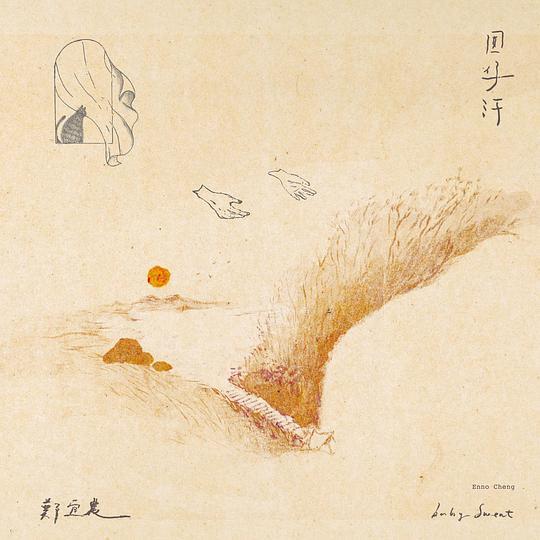 囝仔汗
Enno Cheng
鄭宜農
baby Sweat